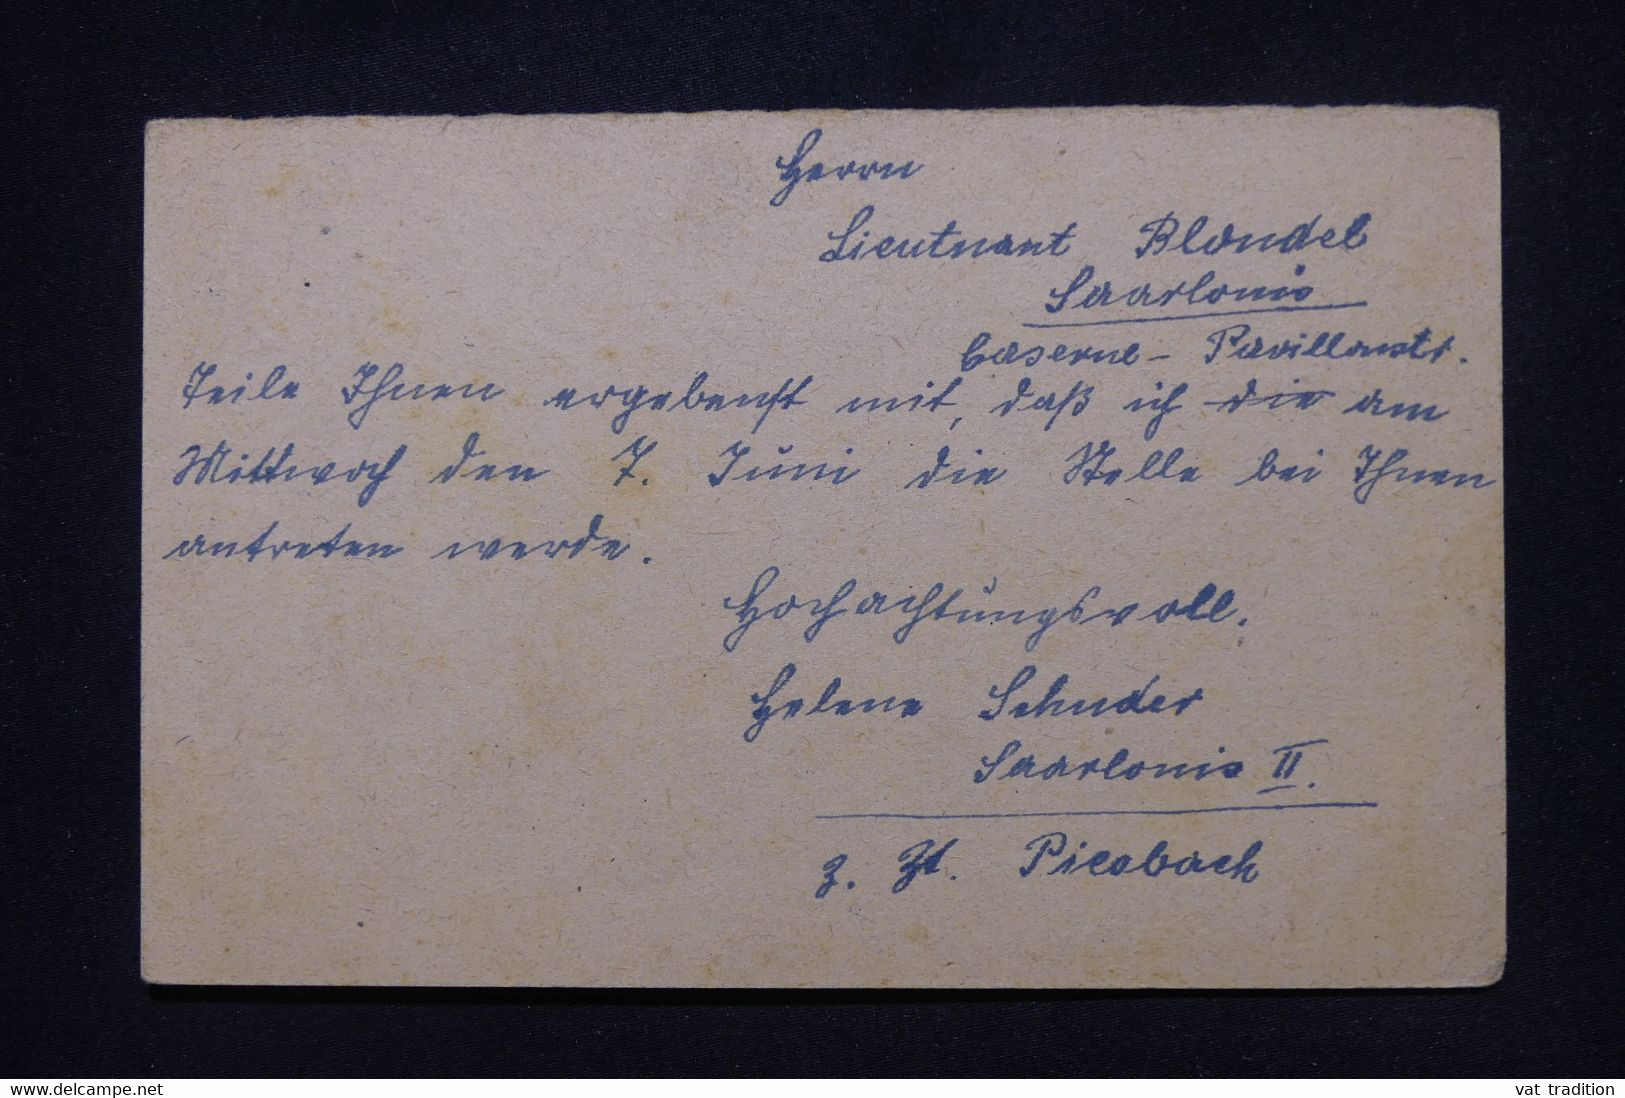 Herrn
Lieutnant Blondel
Saarlouis
Caserne - Pavillonstr.
Teile Ihnen ergebenst mit, daß ich die am
Mittwoch den 7. Juni die Stelle bei Ihnen
antreten werde.
Hochachtungsvoll.
Helene Schuder
Saarlouis II.
z. Zt. Piesbach
www.delcampe.net
vat tradition